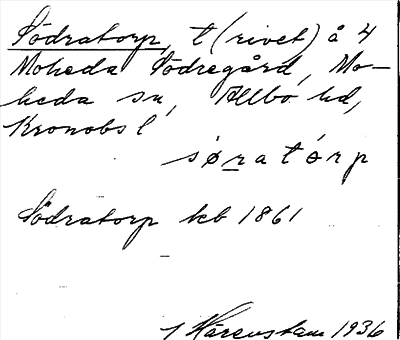 Södratorp, t (rivet) å 4
Moheda Södregård, Mo-
heda sn, Allbo hd,
Kronobs l
søratórp
Södratorp kb 1861
Härenstam 1936